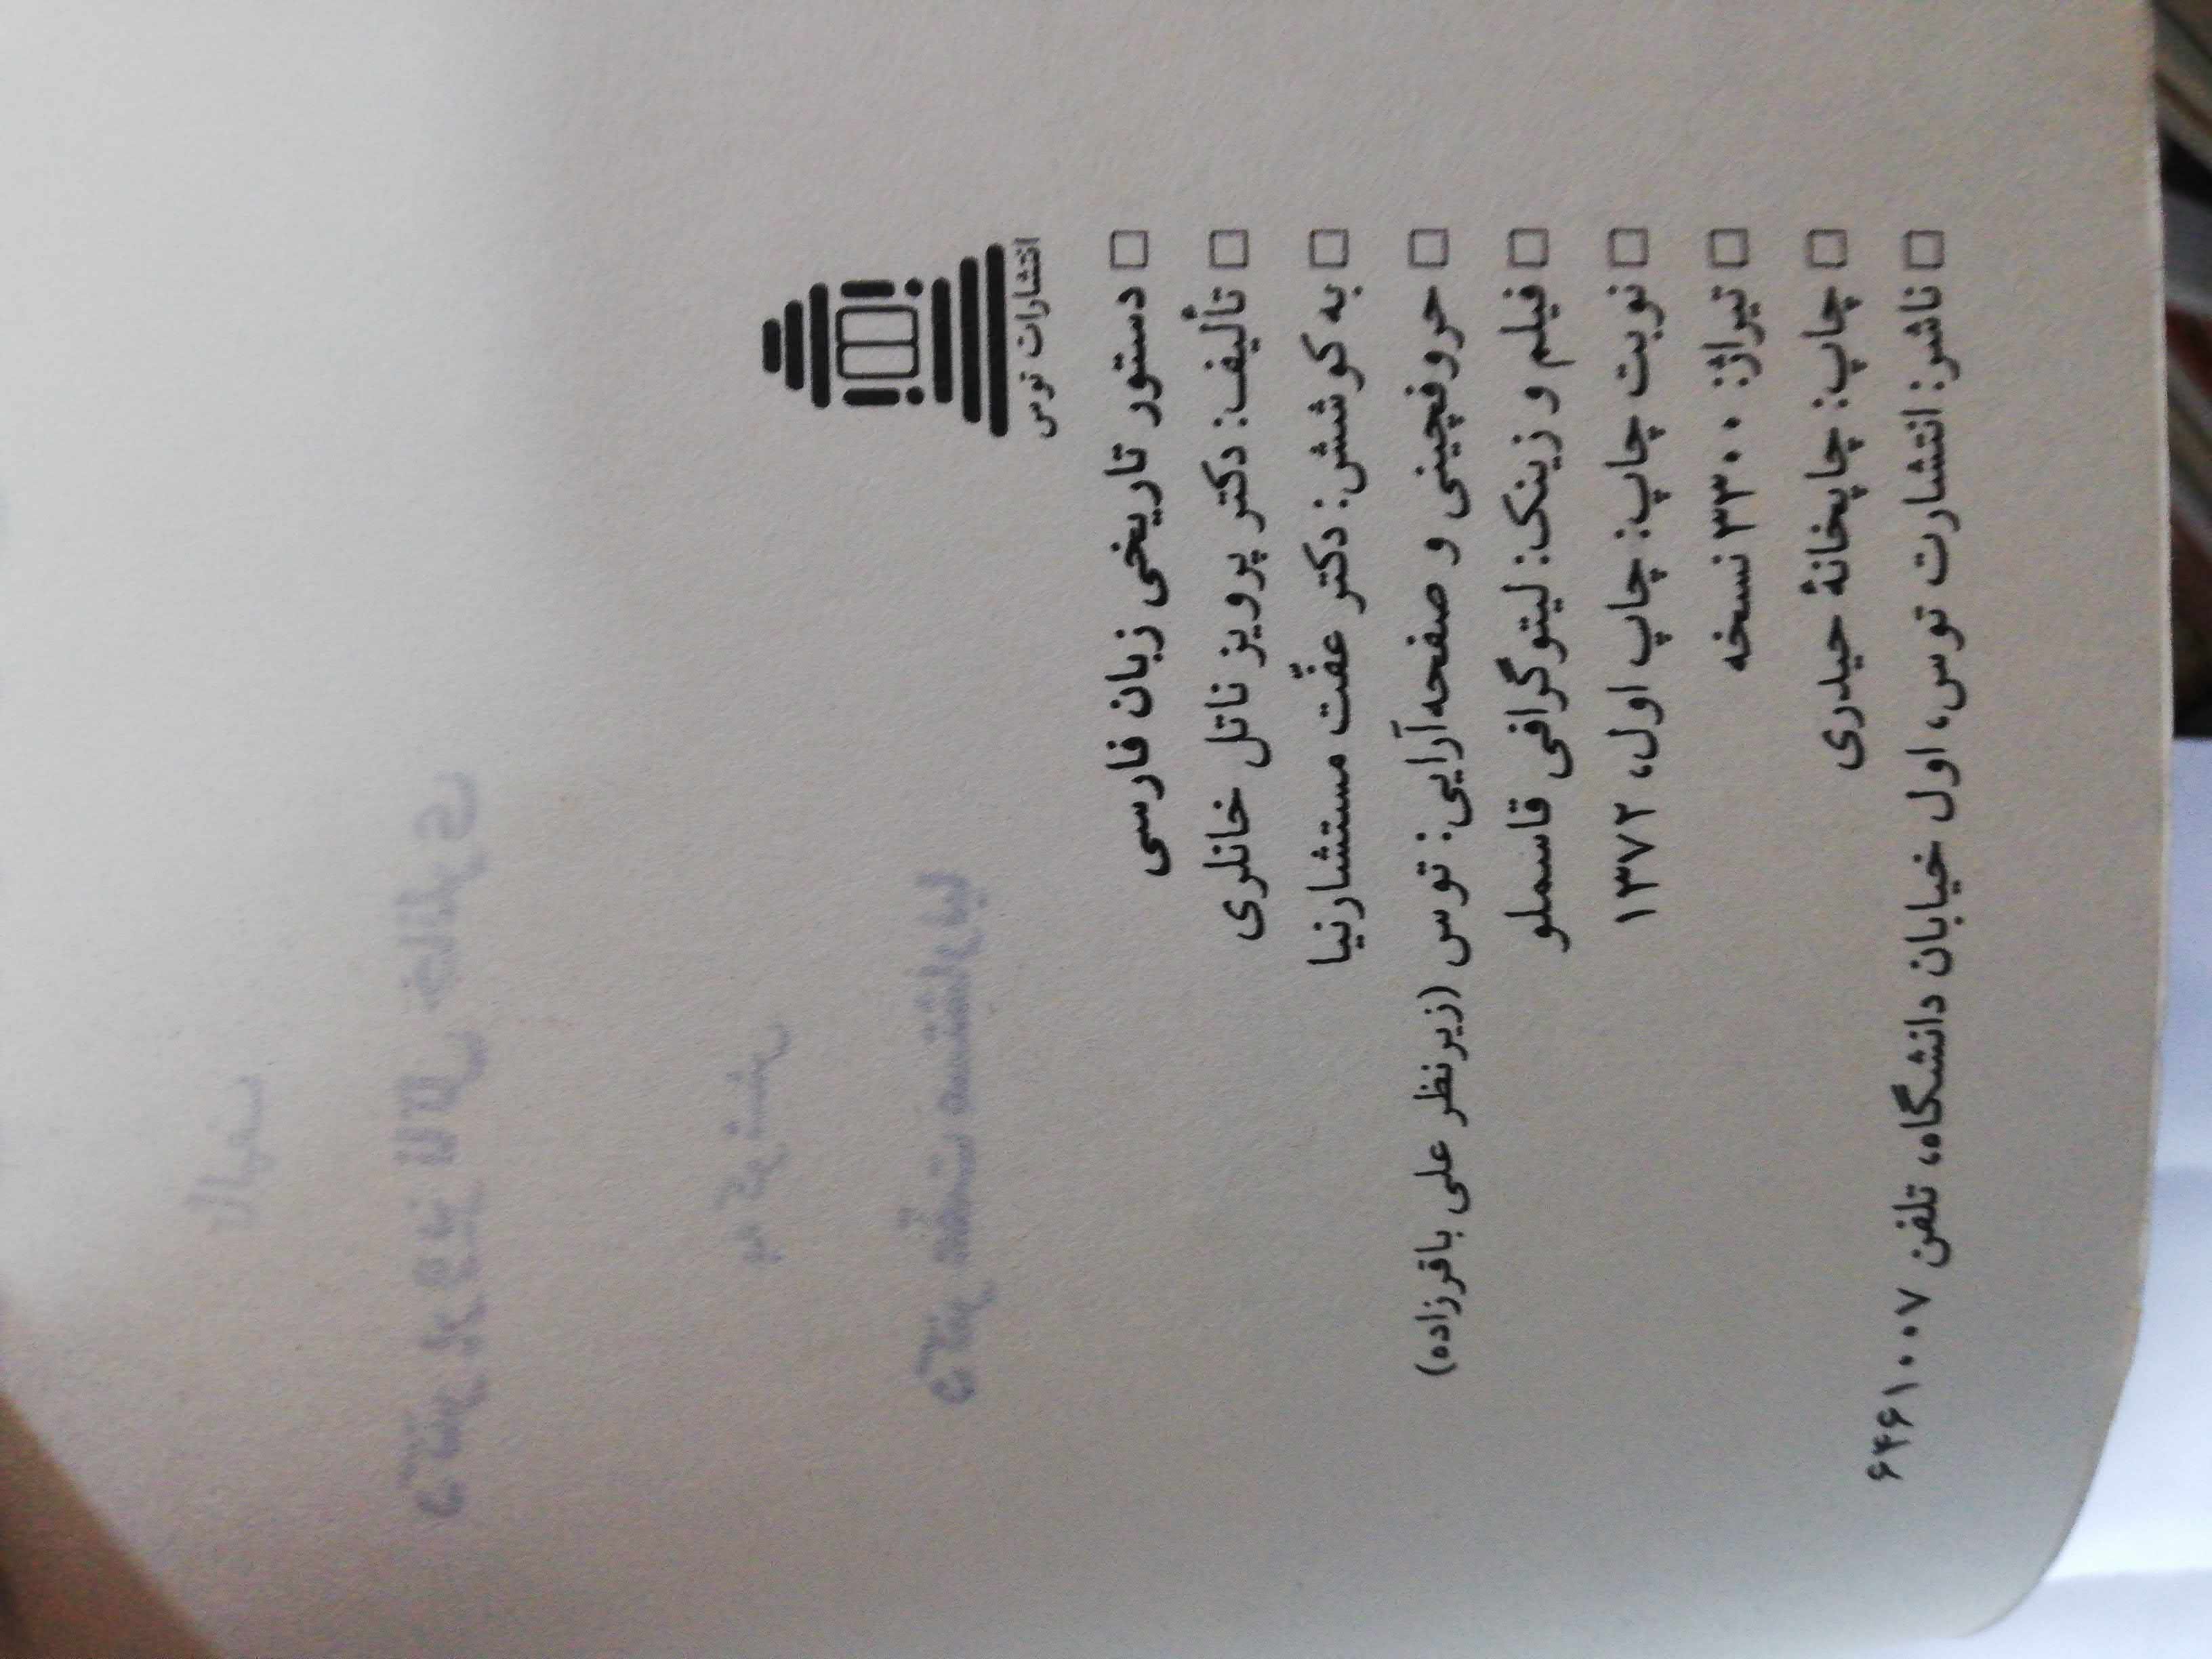 انتشارات توس
□ دستور تاریخی زبان فارسی
□ تألیف: دکتر پرویز ناتل خانلری
□ به کوشش: دکتر عفّت مستشارنیا
□ حروفچینی و صفحه‌آرایی: توس (زیرنظر علی باقرزاده)
□ فیلم و زینک: لیتوگرافی قاسملو
□ نوبت چاپ: چاپ اول، ۱۳۷۲
□ تیراژ: ۳۳۰۰ نسخه
□ چاپ: چاپخانهٔ حیدری
□ ناشر: انتشارت توس، اول خیابان دانشگاه، تلفن ۶۴۶۱۰۰۷
تألیف
دکتر پرویز ناتل خانلری
به کوشش
دکتر عفّت مستشارنیا